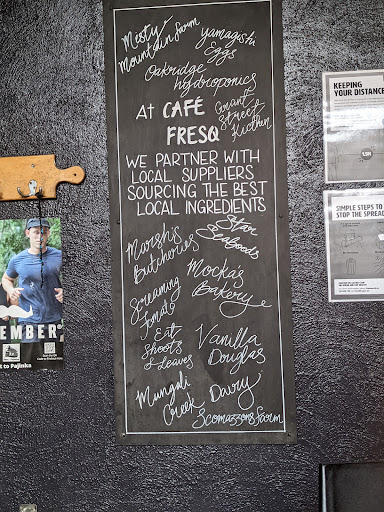 Misty
Mountain farm
Yamagishi
Eggs
Oakridge
hydroponics
Grant
Street
Kitchen
At CAFÉ
FRESQ
WE PARTNER WITH
LOCAL SUPPLIERS
SOURCING THE BEST
LOCAL INGREDIENTS
Star
Seafoods
Marsh's
Butcheries
Mocka's
Bakery
Screaming
Tomato
Eat
Shoots
& Leaves
Vanilla
Douglas
Mungali
Creek Dairy
Scomazzons farm
KEEPING
YOUR DISTANCE
1.5M
SIMPLE STEPS TO
STOP THE SPREAD
EMBER
t to Pajinka